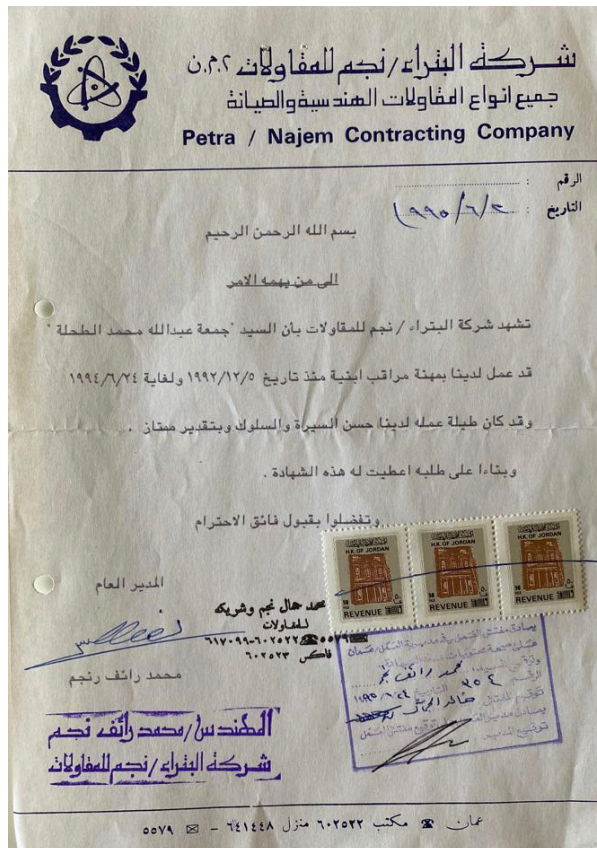 شركة البتراء/نجم للمقاولات م.م.ن
جميع انواع المقاولات الهندسية والصيانة
Petra / Najem Contracting Company
الرقم :
التاريخ : ١٩٩٥/٦/٢
بسم الله الرحمن الرحيم
الى من يهمه الامر
تشهد شركة البتراء / نجم للمقاولات بأن السيد "جمعة عبدالله محمد الطحلة"
قد عمل لدينا بمهنة مراقب ابنية منذ تاريخ ١٩٩٢/١٢/٥ ولغاية ١٩٩٤/٦/٢٤
وقد كان طيلة عمله لدينا حسن السيرة والسلوك وبتقدير ممتاز .
وبناءا على طلبه اعطيت له هذه الشهادة .
وتفضلوا بقبول فائق الاحترام
H.K. OF JORDAN H.K. OF JORDAN H.K. OF JORDAN
REVENUE REVENUE REVENUE
المدير العام
محمد جمال نجم وشريكه
للمقاولات
٦١٧٠٩٩-٦٠٢٥٢٢ ☎ ٥٥٧٩ ✉
فاكس ٦٠٢٥٢٣
محمد رائف رنجم
محمد رائف نجم
الرقم ٣٥٢ التاريخ
المهندس/محمد رائف نجم
شركة البتراء/نجم للمقاولات
عمان ☎ مكتب ٦٠٢٥٢٢ منزل ٦٤١٤٤٨ - ✉ ٥٥٧٩